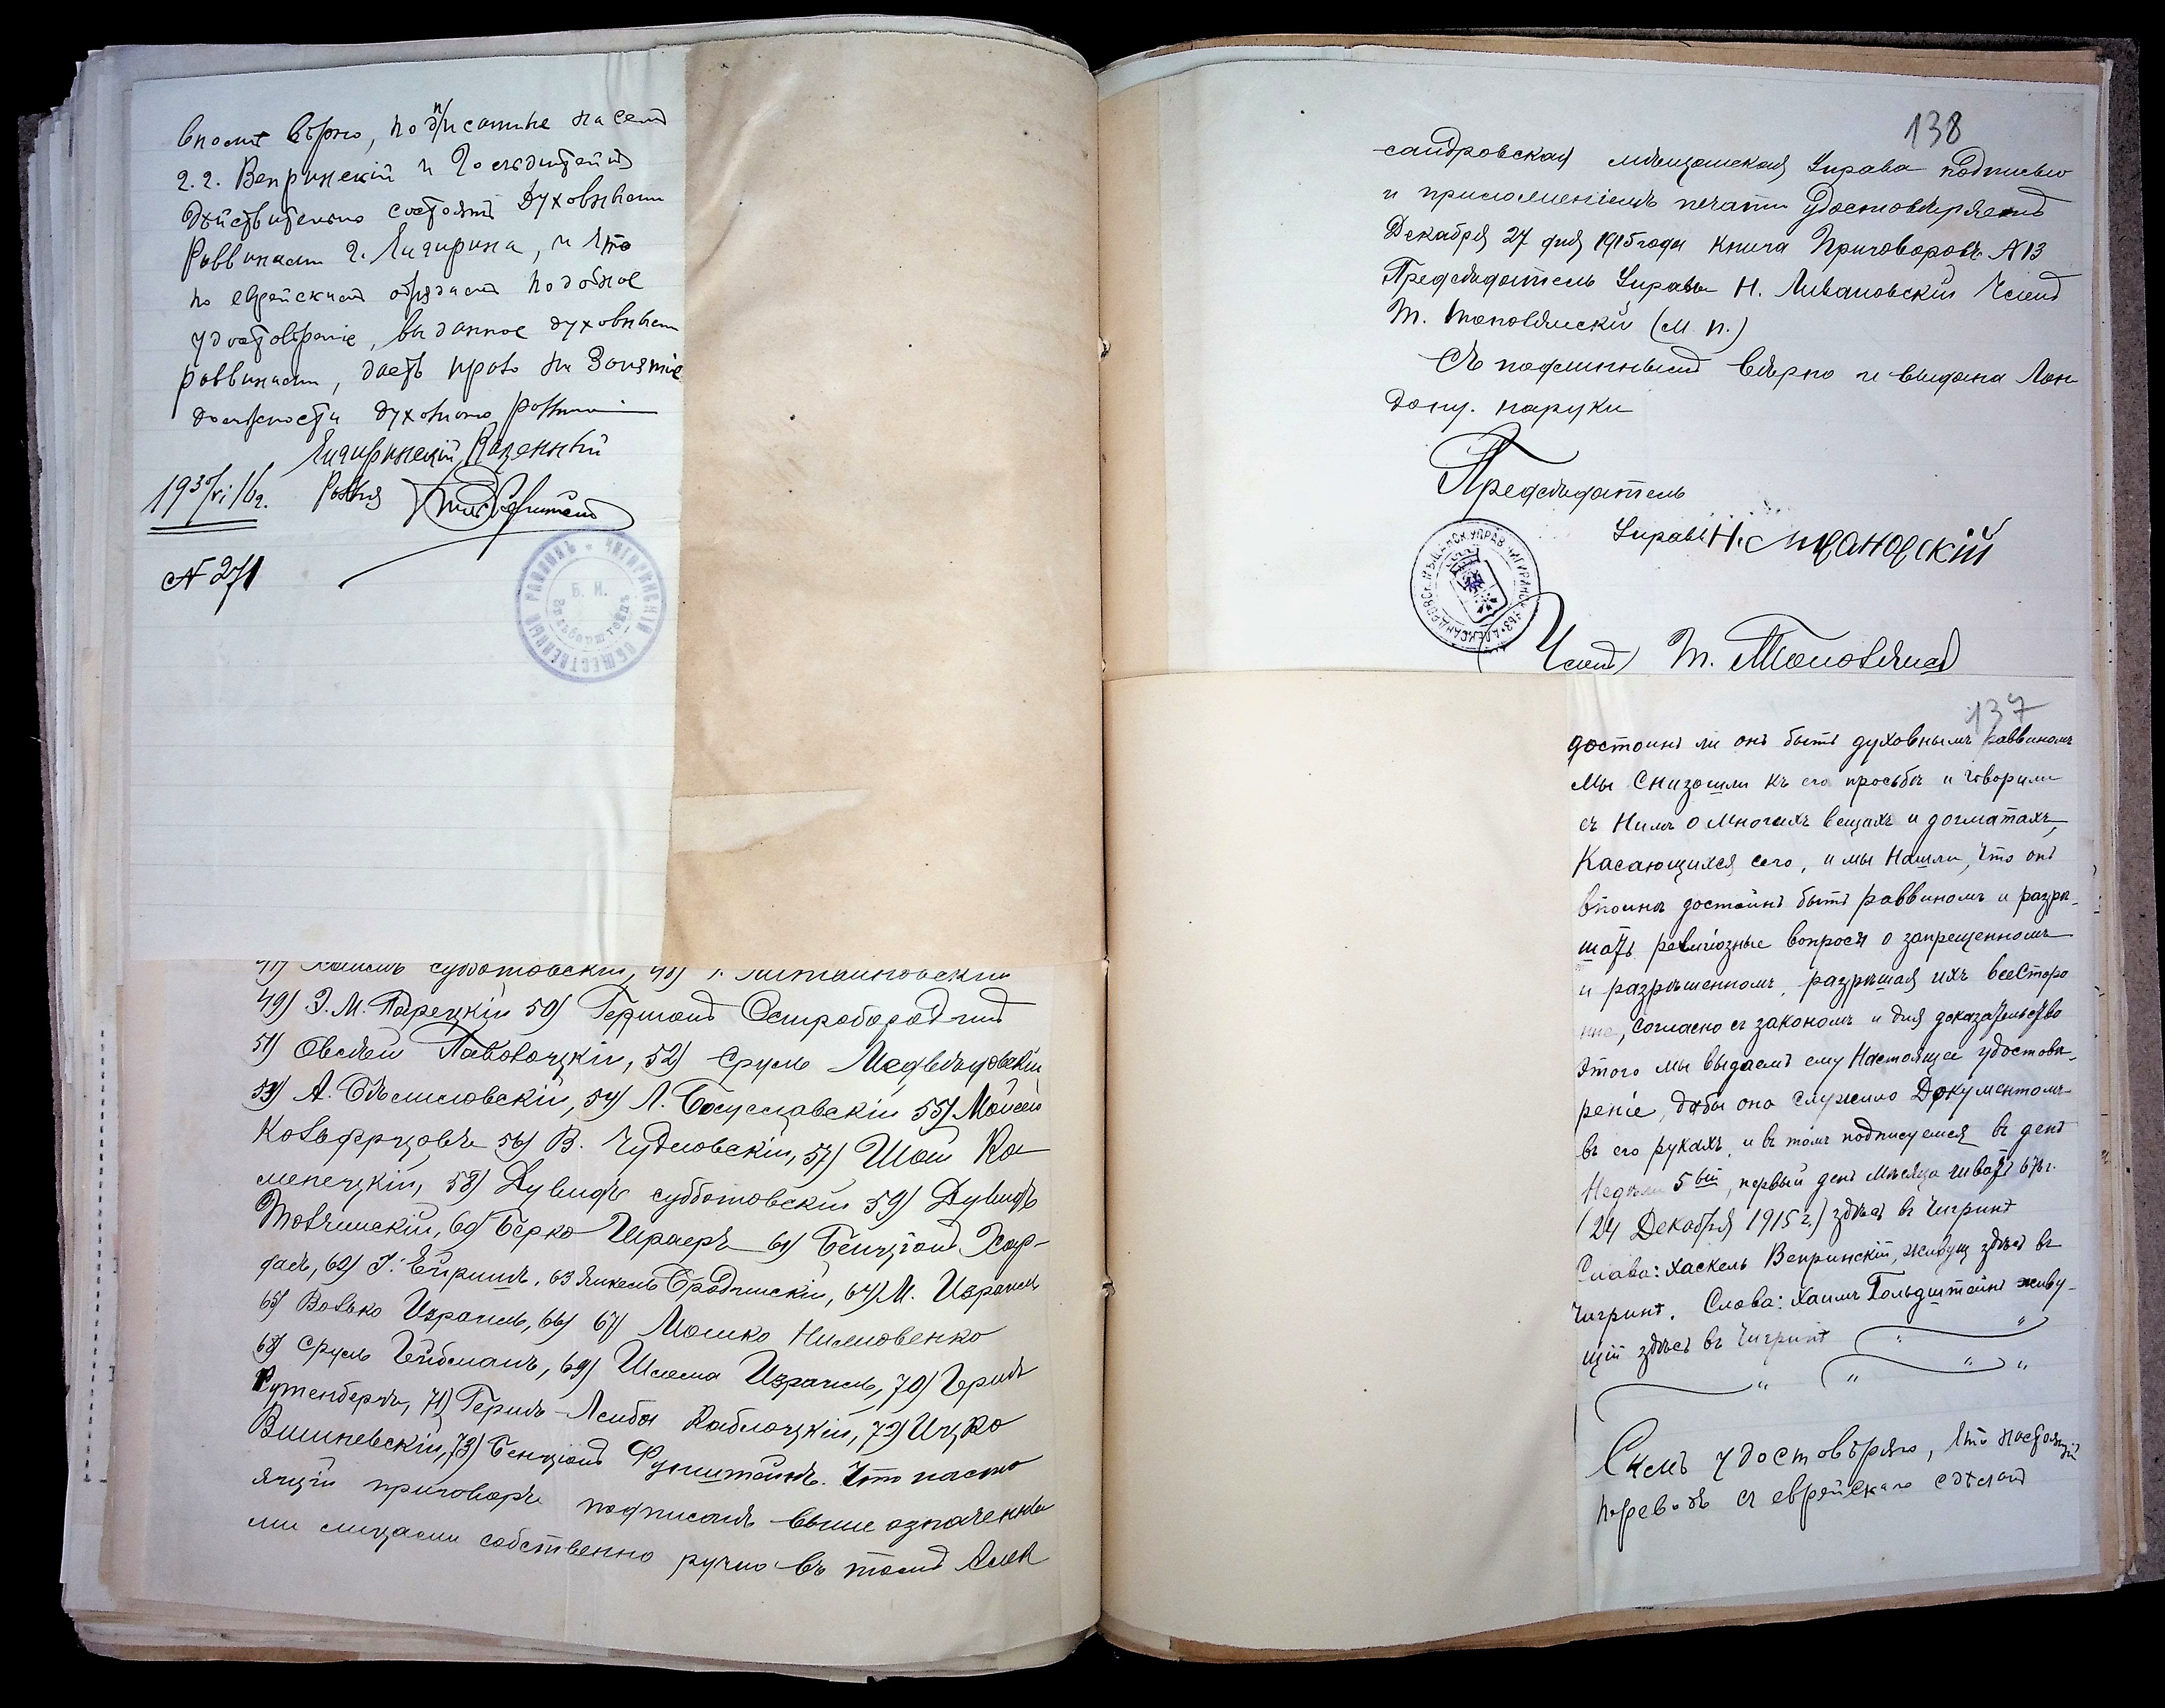 вполнѣ вѣрно, подписавшіе на семъ
г.г. Вепринскій и Гольдштейнъ
дѣйствительно состоятъ духовными
Раввинами г. Чигирина, и что
по еврейскимъ обрядамъ подобное
удостовѣреніе, выданное духовными
раввинами, даетъ право на занятіе
должности духовнаго раввина
Чигиринскій Казенный
Раввинъ
№ 271
ЧИГИРИНСКІЙ ОБЩЕСТВЕННЫЙ РАВВИНЪ
Б. И.
Суботовскій
49) Э. М. Парецкій 50) Гершонъ Остробродскій
51) Овсѣй Паволоцкій, 52) Сруль Медвѣдовскій
53) А. Смѣловскій, 54) Л. Богуславскій 55) Мойсей
56) В. Чудновскій, 57) Шая Ка-
менецкій, 58) Дувидъ субботовскій 59) Дувидъ
60) Берко Шраеръ 61) Бенціонъ Хар-
63 Янкель Бродскій, 64) М. Израиль
65) Волько Израиль, 66) 67) Мошко Нимовенко
68) Сруль 69) Шлема Израиль, 70) Гершъ
Рутенбергъ, 71) Гершъ-Лейба Каблоцкій, 72) Ицко
Вишневскій, 73) Бенціонъ Что насто-
ящій приговоръ подписанъ выше означенны
ми лицами собственно ручно въ томъ Алек
138
сандровская мѣщанская Управа подписью
и приложеніемъ печати удостовѣряетъ
Декабря 27 дня 1915 года книга Приговоровъ № 13
Предсѣдатель Управы Н. Ливановскій Членъ
Т. (М. п.)
Съ подлиннымъ вѣрно и выдана Лон-
дону. на руки
Предсѣдатель
Управы Н. Ливановскій
АЛЕКСАНДРОВСК. МѢЩАНСК. УПРАВ. ЧИГИРИНСК. УѢЗ.
Членъ Т.
137
достоинъ ли онъ быть духовнымъ раввиномъ
Мы снизошли къ его просьбѣ и говорили
съ нимъ о многихъ вещахъ и догматахъ,
касающихся сего, и мы нашли, что онъ
вполнѣ достоинъ быть раввиномъ и разрѣ-
шать религіозные вопросы о запрещенномъ
и разрѣшенномъ, разрѣшая ихъ всесторо
нне, согласно съ закономъ и для доказательство
этого мы выдаемъ ему настоящее удостовѣ-
реніе, дабы оно служило документомъ
въ его рукахъ, и въ томъ подписуемся въ день
недѣли 5ый, первый день мѣсяца 676 г.
(24 Декабря 1915 г.) здѣсь въ Чигринѣ
Слова: Хаскель Вепринскій, живущ здѣсь въ
Чигринѣ. Слова: Хаимъ Гольдштейнъ живу-
щій здѣсь въ Чигринѣ
Симъ удостовѣряю, что настоящій
переводъ съ еврейскаго сдѣланъ